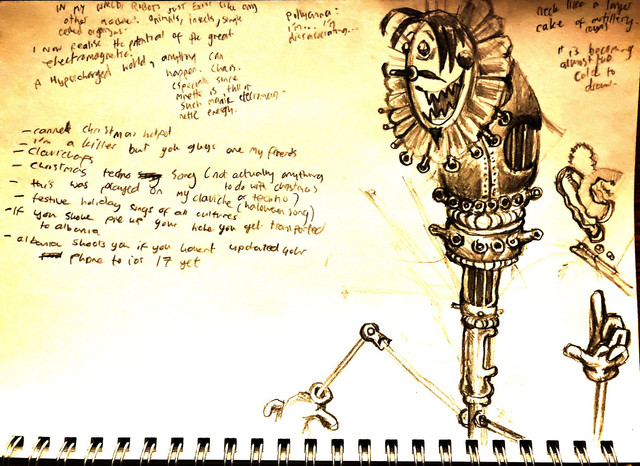 IN MY WORLD ROBOTS just EXIST like any
other animal. Animals, insects, single
celled organisms.
I now realise the potential of the great
electromagnetic.
A Hypercharged world, anything can
happen. Chaos.
especially since
is full of
such manic electromag-
netic energy.
Pollyanna:
I'm.... I'm
disintegrating...
neck like a larger
cake of artillery
it is becoming
almost too
cold to
draw.
- cannel christmas helped
- I'm a killer but you guys are my friends
- clavichops
- christmas tecno song (not actually anything
to do with christmas)
- this was played on my claviche or tecno)
- festive holiday songs of all cultures (halloween song)
- If you shove pie up your hole you get transported
to albania
- albania shoots you if you havent updated your
phone to ios 17 yet